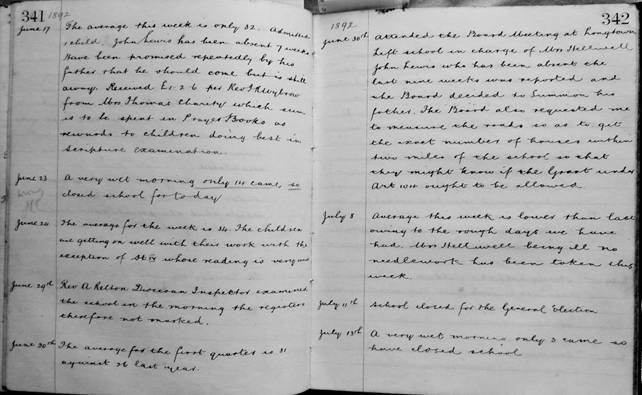 341 1892
June 17 The average this week is only 32. Admitted
1 child. John Lewis has been absent 7 weeks
Have been promised repeatedly by his
father that he should come but is still
away. Received £1. 2. 6 per Rev
from Mrs Thomas Charity which sum
is to be spent in Prayer Books as
rewards to children doing best in
Scripture Examination.
June 23 A very wet morning only 14 came, so
closed school for to day
June 24 The average for the week is 34. The children
are getting on well with their work with the
exception of St IV whose reading is very
June 29th Rev A Relton Diocesan Inspektor examined
the school in the morning the registers
therefore not marked.
June 30th The average for the first quarter is 31
against 26 last year.
342
1892
June 30th Attended the Board Meeting at Longtown
left school in charge of Mrs Helliwell
John Lewis who has been absent the
last nine weeks was reported and
the Board decided to Summon his
father. The Board also requested me
to measure the roads so as to get
the exact number of houses within
two miles of the school so that
they might know if the Grant under
Art 104 ought to be allowed.
July 8 Average this week is lower than last
owing to the rough days we have
had. Mrs Helliwell being ill no
needlework has been taken this
week.
July 11th School closed for the General Election
July 13th A very wet morning only 3 came so
have closed school